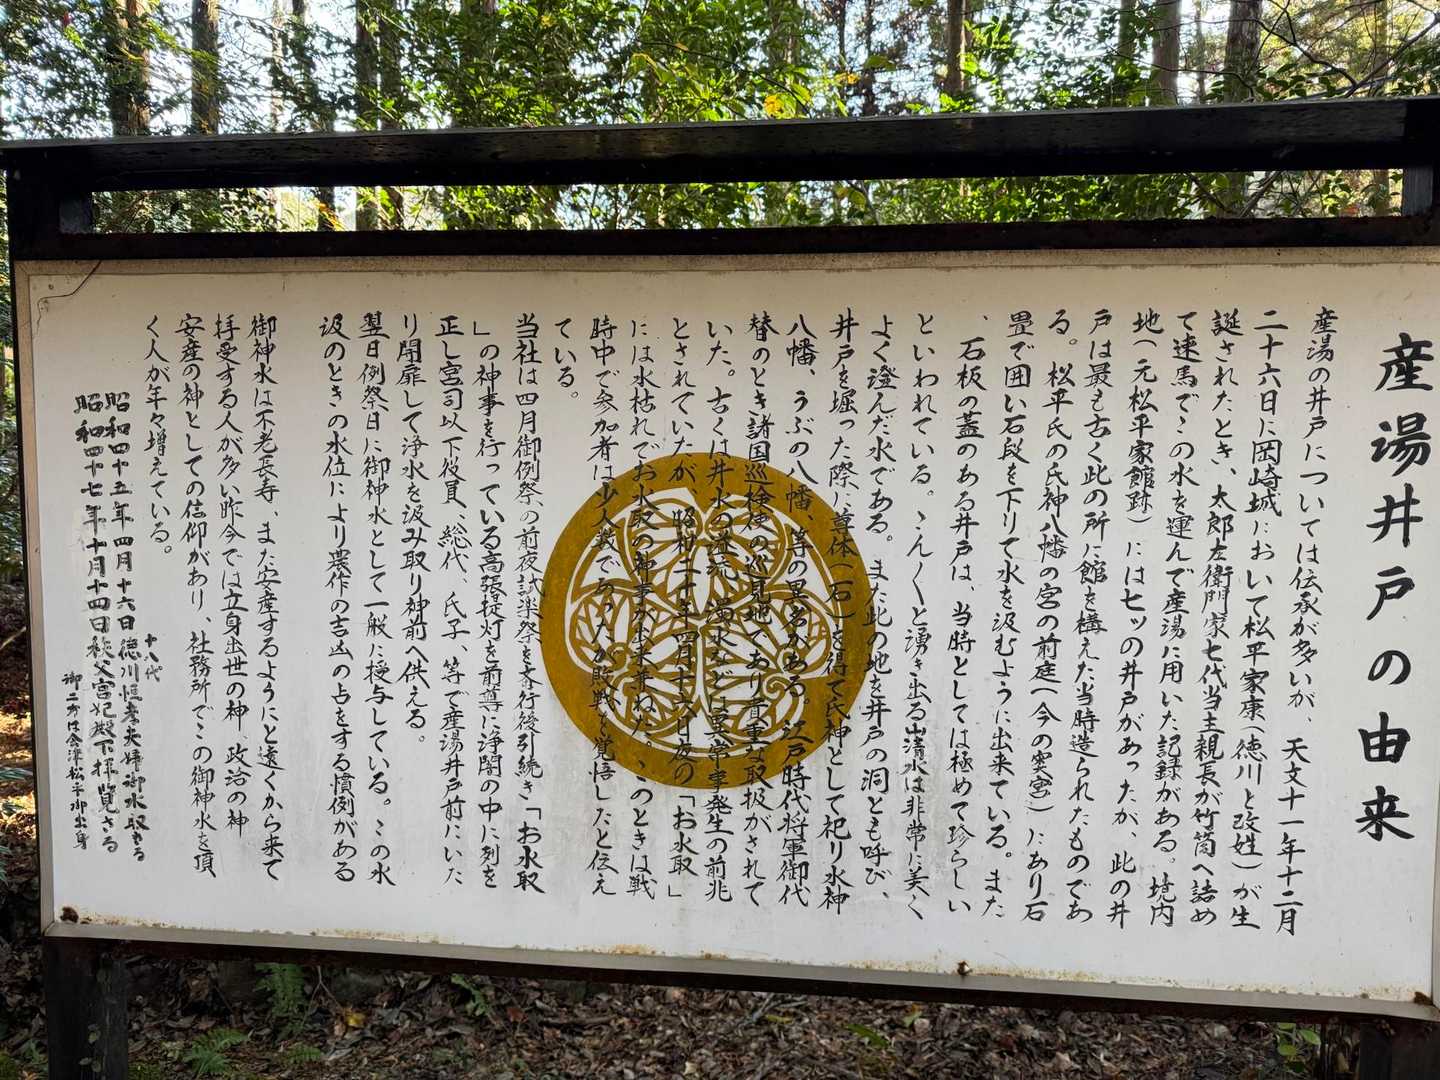 産湯井戸の由来
産湯の井戸については伝承が多いが、天文十一年十二月
二十六日に岡崎城において松平家康（徳川と改姓）が生
誕されたとき、太郎左衛門家七代当主親長が竹筒へ詰め
て速馬でこの水を運んで産湯に用いた記録がある。境内
地（元松平家館跡）には七ッの井戸があったが、此の井
戸は最も古く此の所に館を構えた当時造られたものであ
る。松平氏の氏神八幡の宮の前庭（今の　）にあり石
畳で囲い石段を下りて水を汲むように出来ている。また
、石板の蓋のある井戸は、当時としては極めて珍らしい
といわれている。こんこんと湧き出る山清水は非常に美く
よく澄んだ水である。また此の地を井戸の洞とも呼び、
井戸を堀った際に尊体（石）を得て氏神として祀り水神
八幡、うぶの八幡、等の異名がある。江戸時代将軍御代
替のとき諸国巡検使の巡見地であり貴重な取扱がされて
いた。古くは井水の溢流、濁水などは異常事発生の前兆
とされていたが、昭和二十年四月十六日夜の「お水取」
には水枯れでお水取の神事が出来兼ねた。このときは戦
時中で参加者は少人数であったが敗戦を覚悟したと伝え
ている。
当社は四月御例祭の前夜試楽祭を斎行後引続き「お水取
」の神事を行っている高張提灯を前導に浄闇の中に刻を
正し宮司以下役員、総代、氏子、等で産湯井戸前にいた
り開扉して浄水を汲み取り神前へ供える。
翌日例祭日に御神水として一般に授与している。この水
汲のときの水位により農作の吉凶の占をする慣例がある
御神水は不老長寿、また安産するようにと遠くから来て
拝受する人が多い昨今では立身出世の神、政治の神
安産の神としての信仰があり、社務所でこの御神水を頂
く人が年々増えている。
十八代
昭和四十五年四月十六日徳川恒孝夫婦御水取さる
昭和四十七年十月十四日秩父宮妃殿下拝覧さる
御二方は会津松平御出身